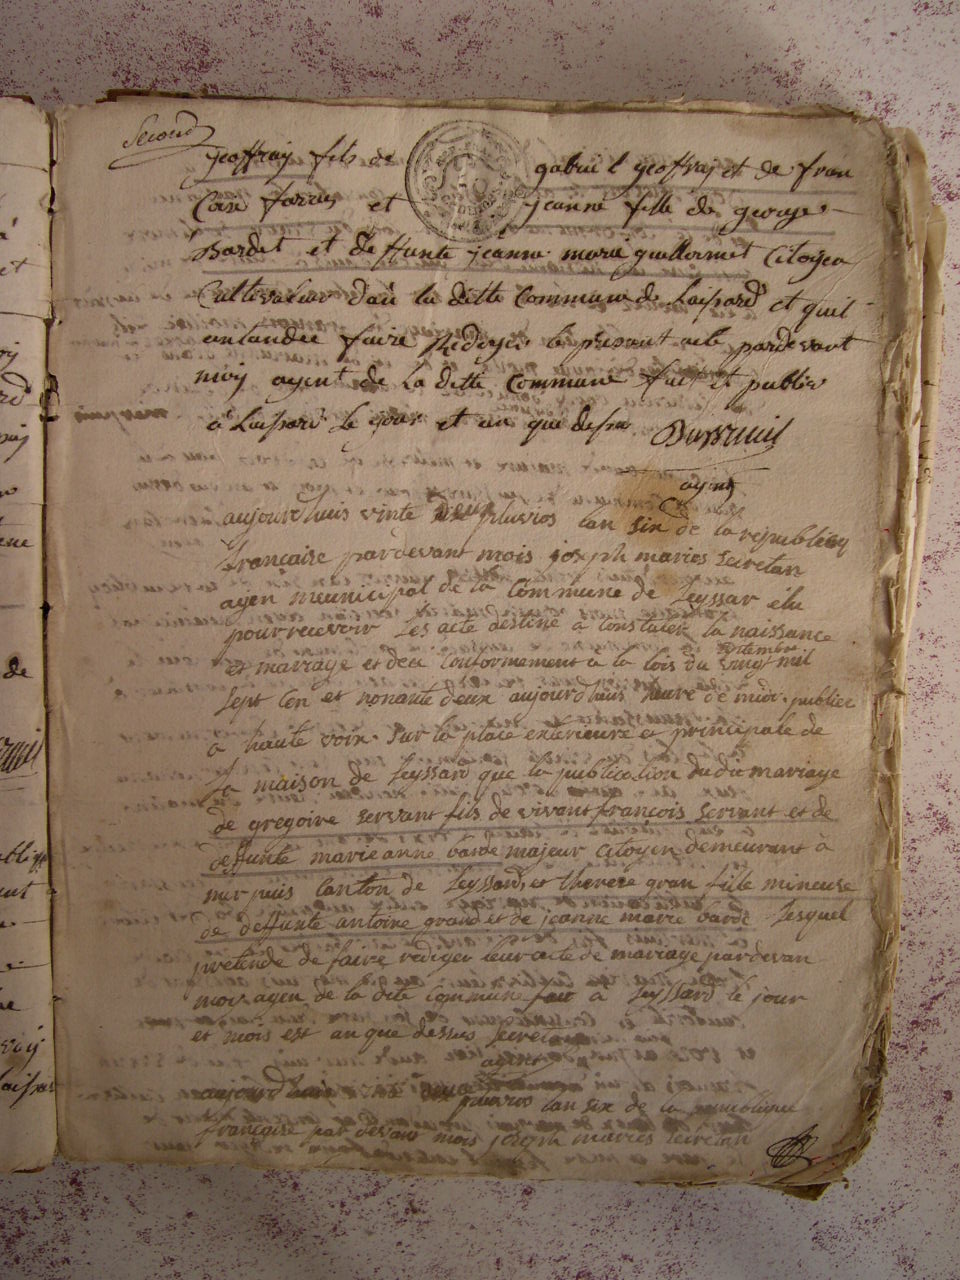 Second
geoffray fils de gabriel geoffray et de fran
Coise farrus et jeanne fille de george
Bardet et deffunte jeanne marie guillermet Citoyen
Cultevateur d'aü la ditte Commune de Laissard et quil
entandee faire Rediger le present acte pardevant
moij agent de la ditte Commune fait et publie
à Laissard le jour et an que dessu Dupreuil
agent
aujourdhuis vinte deux pluvios lan six de la republicq
francaise pardevant mois joseph maries secretan
agen meunicipal de la Commune de Leyssar élu
pour recevoir les acte destiné a constater la naissance
et mariage et dece conformement a la lois du vingt mil
septembre
sept cen et nonante deux aujourdhuis heure de midi publiee
a haute voix sur la place exterieure et principale de
la maison de Leyssard que la publication du du mariage
de gregoire servant fils de vivant françois servant et de
deffunte marie anne barde majeur citoyen demeurant à
merpuis canton de Leyssard, et therese gran fille mineuse
de deffunte antoine grand et de jeanne marie barde Lesquel
pretende de faire rediger leur acte de mariage pardevan
mois agen de la dite commune fait a Leyssard le jour
et mois est an que dessus secretan
agent
aujourdhuis vinte pluvios lan six de la republique
françoise par devant mois joseph maries secretan